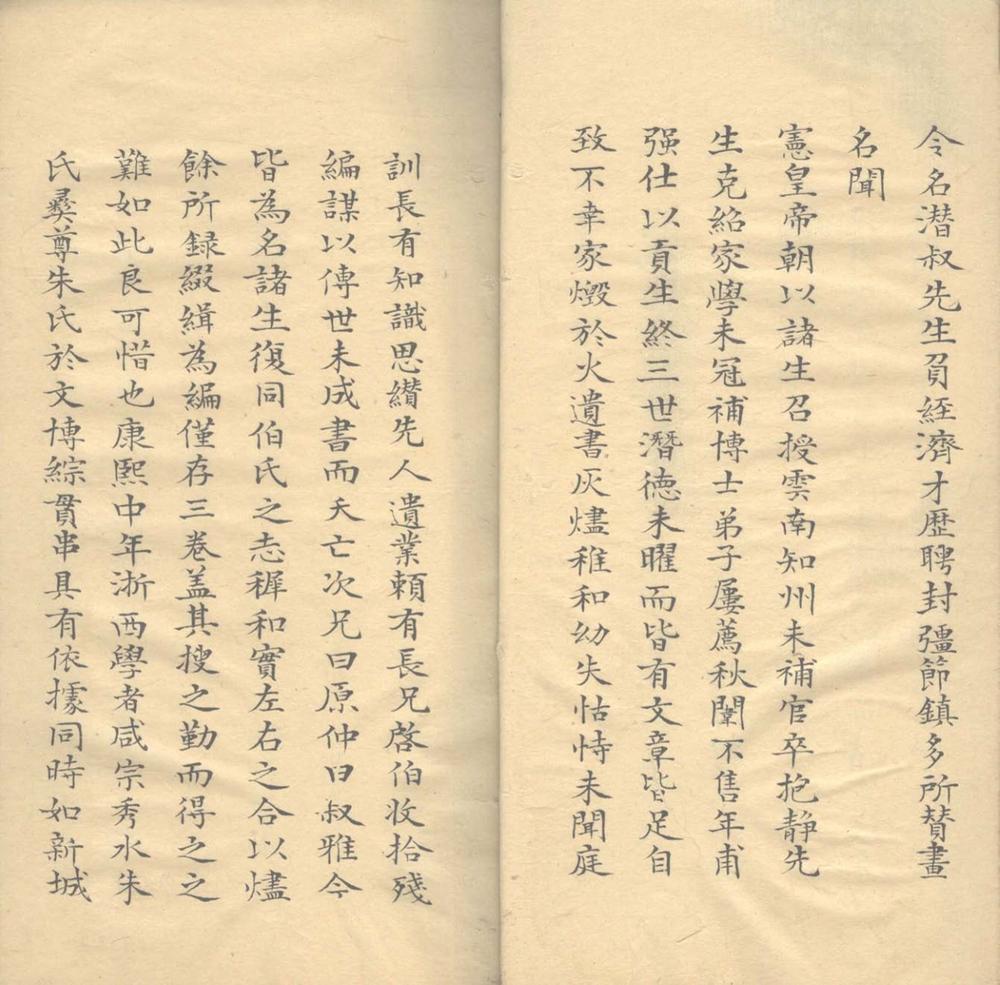 令名潛叔先生負経濟才歷聘封疆節鎮多所賛畫
名聞
憲皇帝朝以諸生召授雲南知州未補官卒抱静先
生克紹家學未冠補博士弟子屢薦秋闈不售年甫
强仕以貢生終三世潛德未曜而皆有文章皆足自
致不幸家燬於火遺書灰燼稚和幼失怙恃未聞庭
訓長有知識思纘先人遺業頼有長兄啓伯收拾殘
編謀以傳世未成書而夭亡次兄曰原仲曰叔雅今
皆為名諸生復同伯氏之志穉和實左右之合以燼
餘所録綴緝為編僅存三卷盖其搜之勤而得之之
難如此良可惜也康熙中年浙西學者咸宗秀水朱
氏彝尊朱氏於文博綜貫串具有依據同時如新城